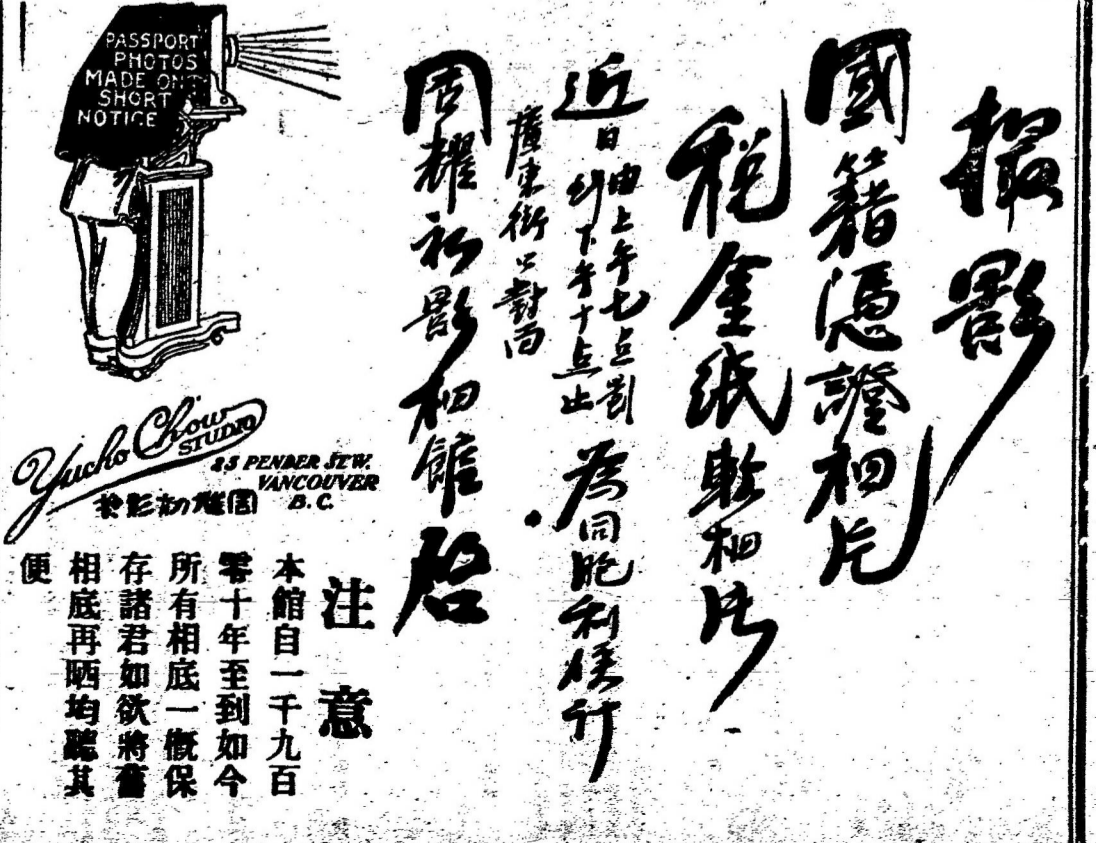 撮影
國籍憑證相片
税金紙軟相片
近日由上午七点到
下午十点止
為同胞利便計
廣東街口對面
周耀初影相館啓
PASSPORT
PHOTOS
MADE ON
SHORT
NOTICE
Yucho Chow
STUDIO
23 PENDER ST W.
VANCOUVER
B.C.
周耀初影
注意
本館自一千九百
零十年至到如今
所有相底一慨保
存諸君如欲將舊
相底再晒均聽其
便